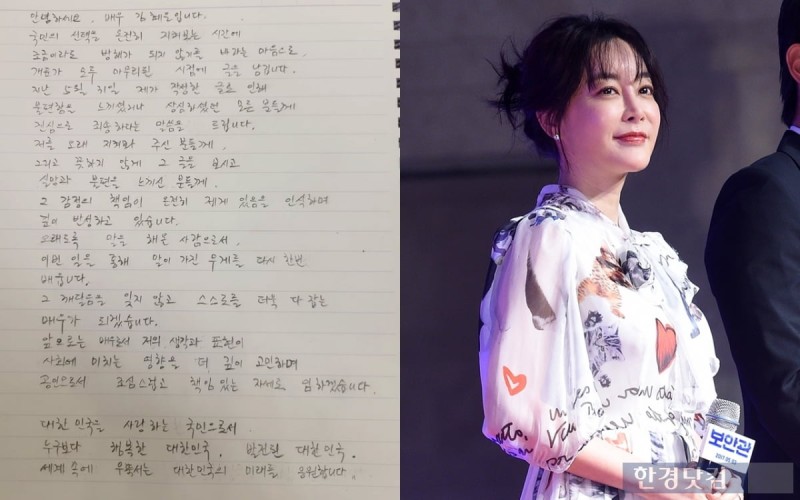 안녕하세요. 배우 김혜은입니다.
국민의 선택을 온전히 지켜보는 시간에
조금이라도 방해가 되지 않기를 바라는 마음으로,
개표가 모두 마무리된 시점에 글을 남깁니다.
지난 5월 31일 제가 작성한 글로 인해
불편함을 느끼셨거나 상심하셨던 모든 분들께
진심으로 죄송하다는 말씀을 드립니다.
저를 오래 지켜봐 주신 분들께,
그리고 뜻하지 않게 그 글을 보시고
실망과 불편을 느끼신 분들께,
그 감정의 책임이 온전히 제게 있음을 인식하며
깊이 반성하고 있습니다.
오래도록 말을 해온 사람으로서,
이번 일을 통해 말이 가진 무게를 다시 한번
배웁니다.
그 깨달음을 잊지 않고 스스로를 더욱 다 잡는
배우가 되겠습니다.
앞으로는 배우로서 저의 생각과 표현이
사회에 미치는 영향을 더 깊이 고민하며
공인으로서 조심스럽고 책임 있는 자세로 임하겠습니다.
대한민국을 사랑하는 국민으로서,
누구보다 행복한 대한민국, 발전된 대한민국,
세계 속에 우뚝서는 대한민국의 미래를 응원합니다.
보안관
2017.05.03
한경닷컴